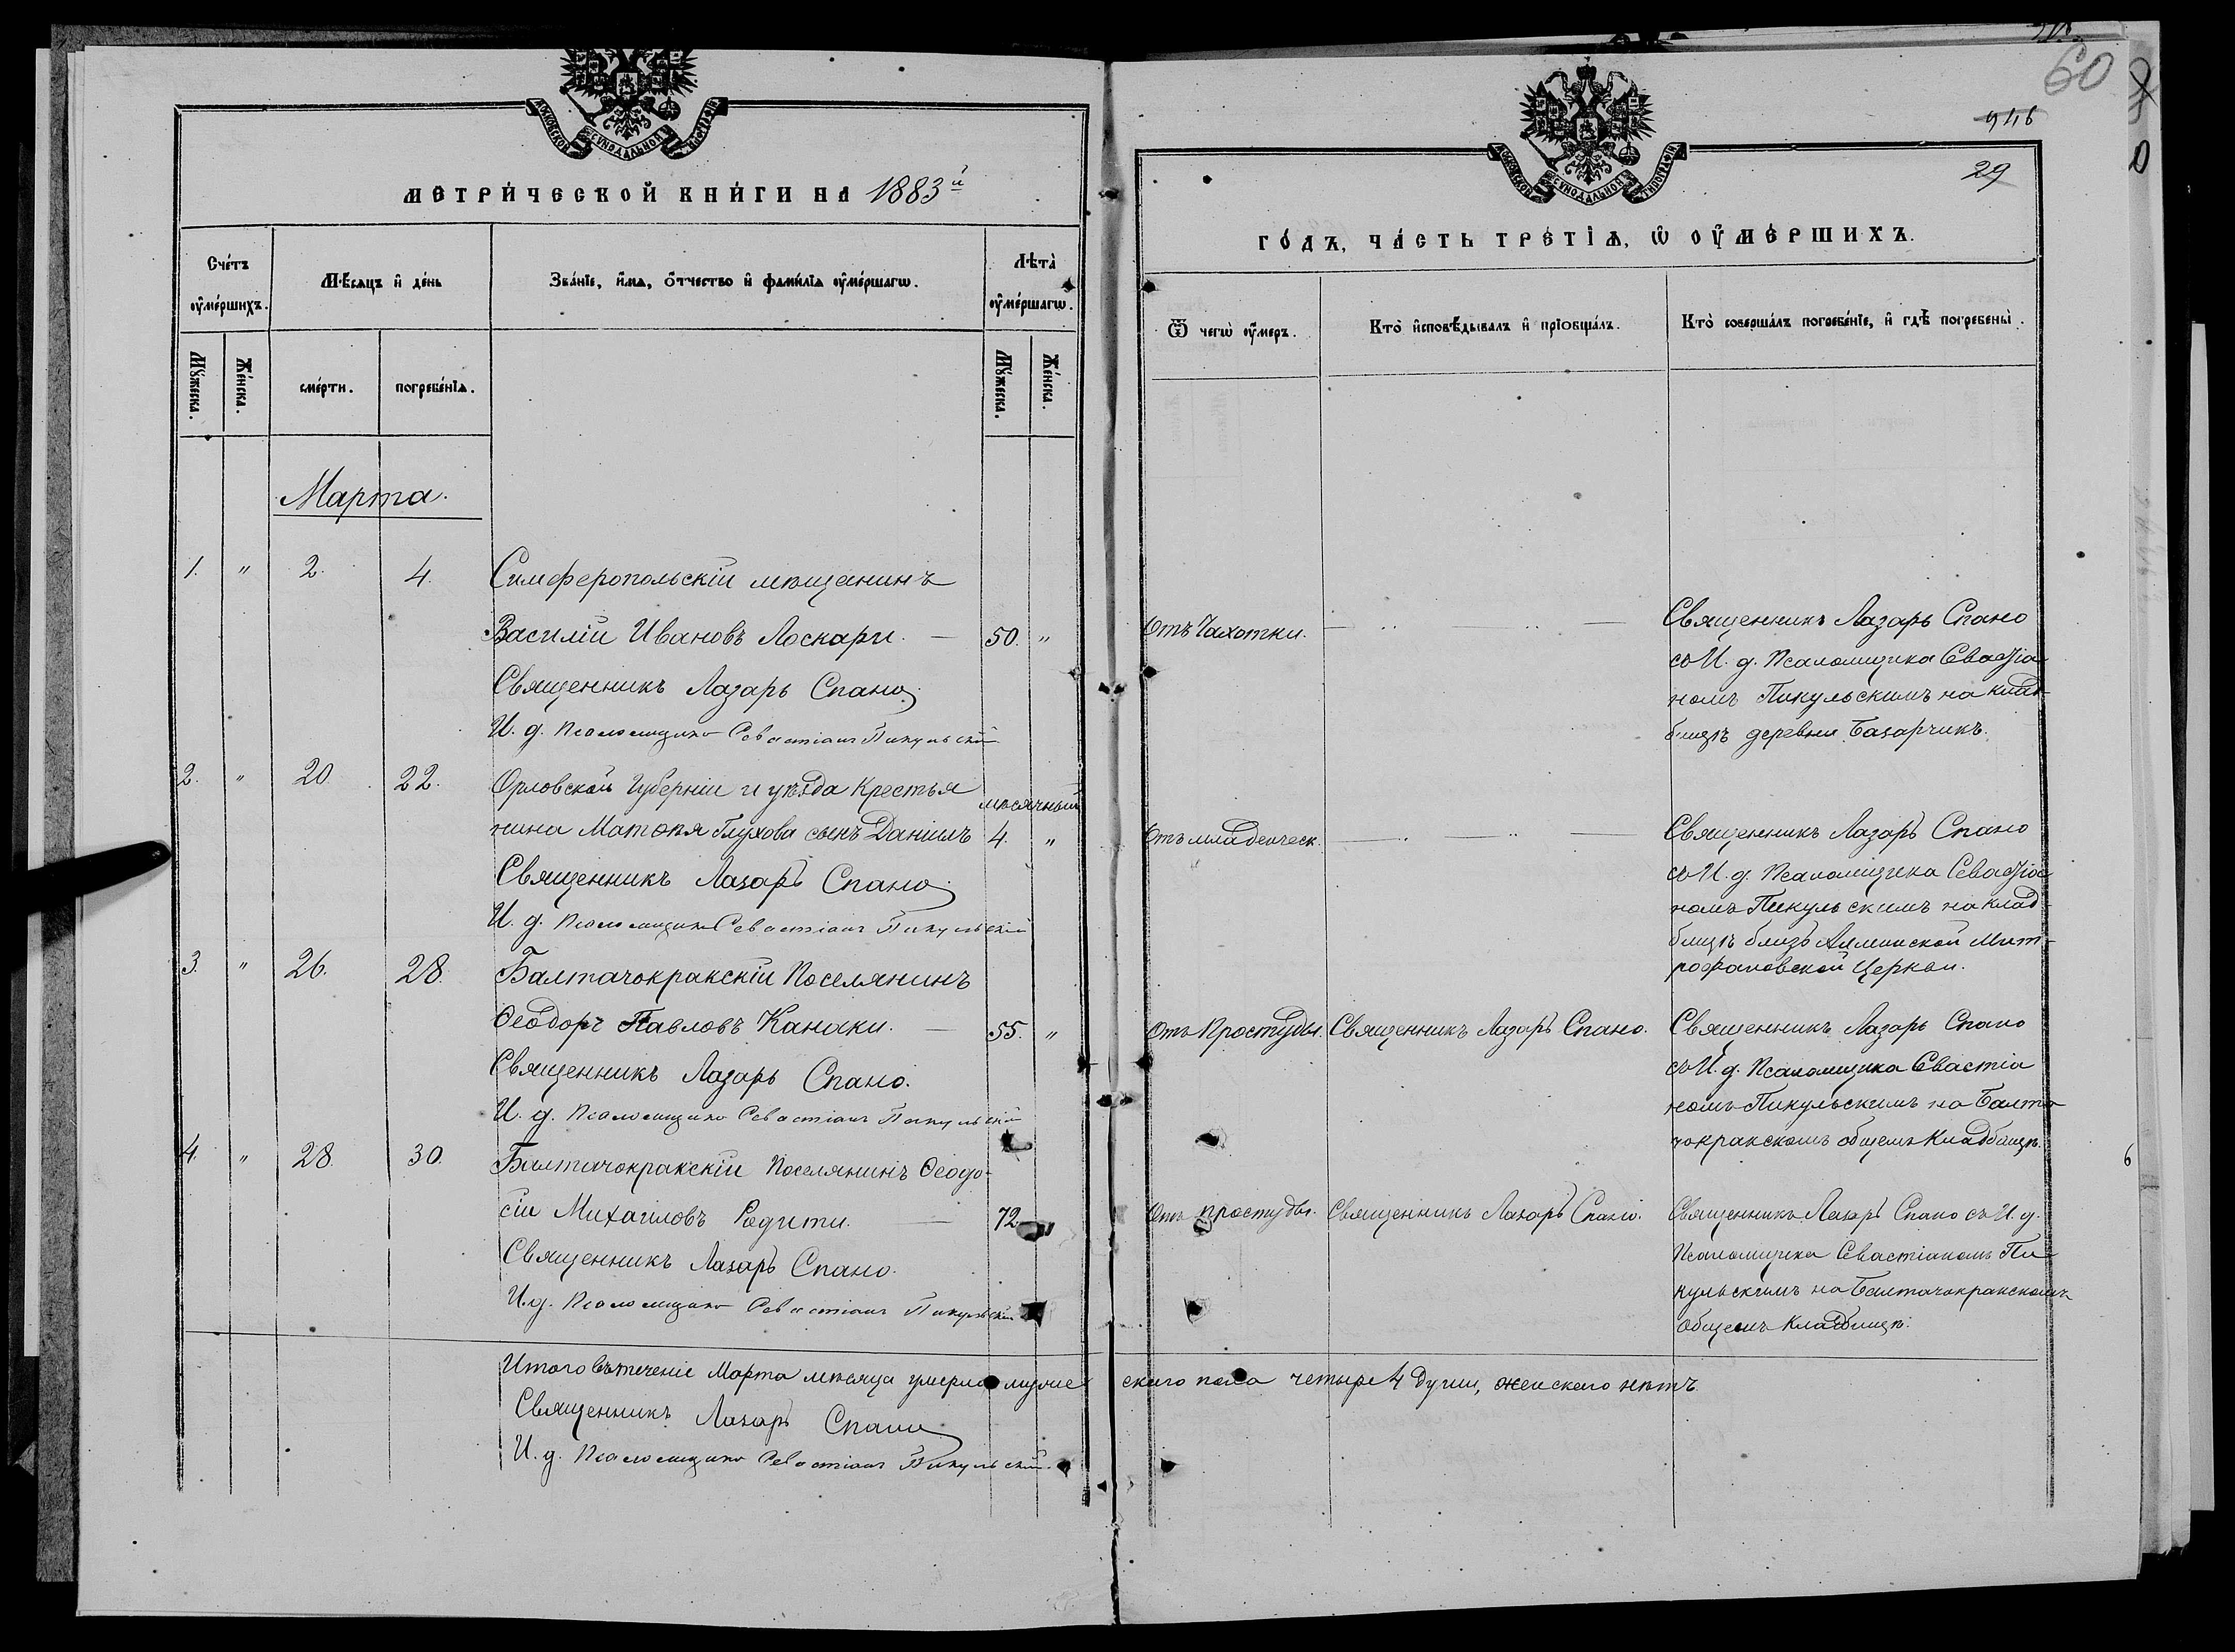 МОСКОВСКОЙ СѴНОДАЛЬНОЙ ТИПОГРАФІИ
МЕТРИ́ЧЕСКОЙ КНИ́ГИ НА 1883й
Сче́тъ ᲂу҆ме́ршихъ.
Мѣ́сяцъ и҆ де́нь
Зва́нїе, и҆́мѧ, ѻ҆́тчество и҆ фами́лїѧ ᲂу҆ме́ршагѡ.
Лѣта̀ ᲂу҆ме́ршагѡ.
Мꙋ́жеска.
Же́нска.
сме́рти.
погребе́нїѧ.
Мꙋ́жеска.
Же́нска.
Марта.
1. " 2. 4. Симферопольскій мѣщанинъ
Василій Ивановъ Лоскари. — 50. "
Священникъ Лазарь Спано
И. д. Псаломщика Севастіанъ Пикульскій
2. " 20. 22. Орловской Губерніи и уѣзда Крестья
мѣсячный
нина Матѳѣя Глухова сынъ Даніилъ 4. "
Священникъ Лазарь Спано
И. д. Псаломщика Севастіанъ Пикульскій
3. " 26. 28. Балтачокракскій Поселянинъ
Ѳеодоръ Павловъ Канаки. — 55. "
Священникъ Лазарь Спано.
И. д. Псаломщика Севастіанъ Пикульскій
4. " 28. 30. Балтачокракскій Поселянинъ Ѳеодо-
сій Михаиловъ Родити. — 72 "
Священникъ Лазарь Спано.
И. д. Псаломщика Севастіанъ Пикульскій
Итого въ теченіе Марта мѣсяца умерло мужескаго пола четыре 4 души, женскаго нѣтъ
Священникъ Лазарь Спано
И. д. Псаломщика Севастіанъ Пикульскій.
60
946
29
МОСКОВСКОЙ СѴНОДАЛЬНОЙ ТИПОГРАФІИ
ГО́ДЪ, ЧА́СТЬ ТРЕ́ТІѦ, Ѡ ОУ҆МЕ́РШИХЪ.
Ѿ чегѡ̀ ᲂу҆́меръ.
Кто̀ и҆сповѣ́дывалъ и҆ прїѡбща́лъ.
Кто̀ соверша́лъ погребе́нїе, и҆ гдѣ̀ погребены̀.
Отъ Чахотки. — " " —
Священникъ Лазарь Спано
съ И. д. Псаломщика Севастіа
номъ Пикульскимъ на клад-
бищѣ деревни Базарчикъ.
Отъ младенческ. — " — " —
Священникъ Лазарь Спано
съ И. д. Псаломщика Севастіа
номъ Пикульскимъ на клад-
бищѣ близъ Алминской Мит-
рофановской Церкви.
Отъ Простуды. Священникъ Лазарь Спано.
Священникъ Лазарь Спано
съ И. д. Псаломщика Евастіа
номъ Пикульскимъ на Балта
чокракскомъ общемъ Кладбищѣ.
Отъ простуды. Священникъ Лазарь Спано.
Священникъ Лазарь Спано съ И. д.
Псаломщика Евастіаномъ Пи-
кульскимъ на Балтачокракскомъ
общемъ Кладбищѣ.